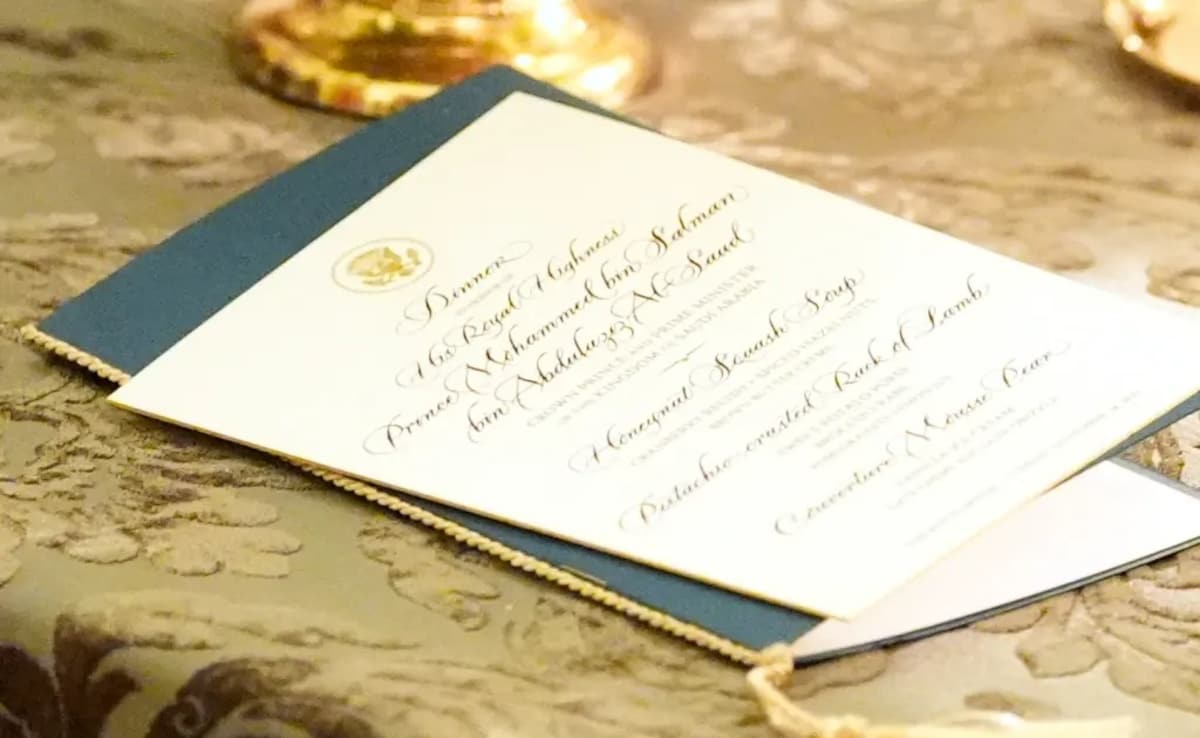 Dinner
His Royal Highness
Prince Mohammed bin Salman
bin Abdulaziz Al-Saud
CROWN PRINCE AND PRIME MINISTER
OF THE KINGDOM OF SAUDI ARABIA
Honeynut Squash Soup
CRANBERRY RELISH • SPICED HAZELNUTS
BROWN BUTTER CRÈME
Pistachio-crusted Rack of Lamb
Couverture Mousse Pear
VANILLA ICE CREAM